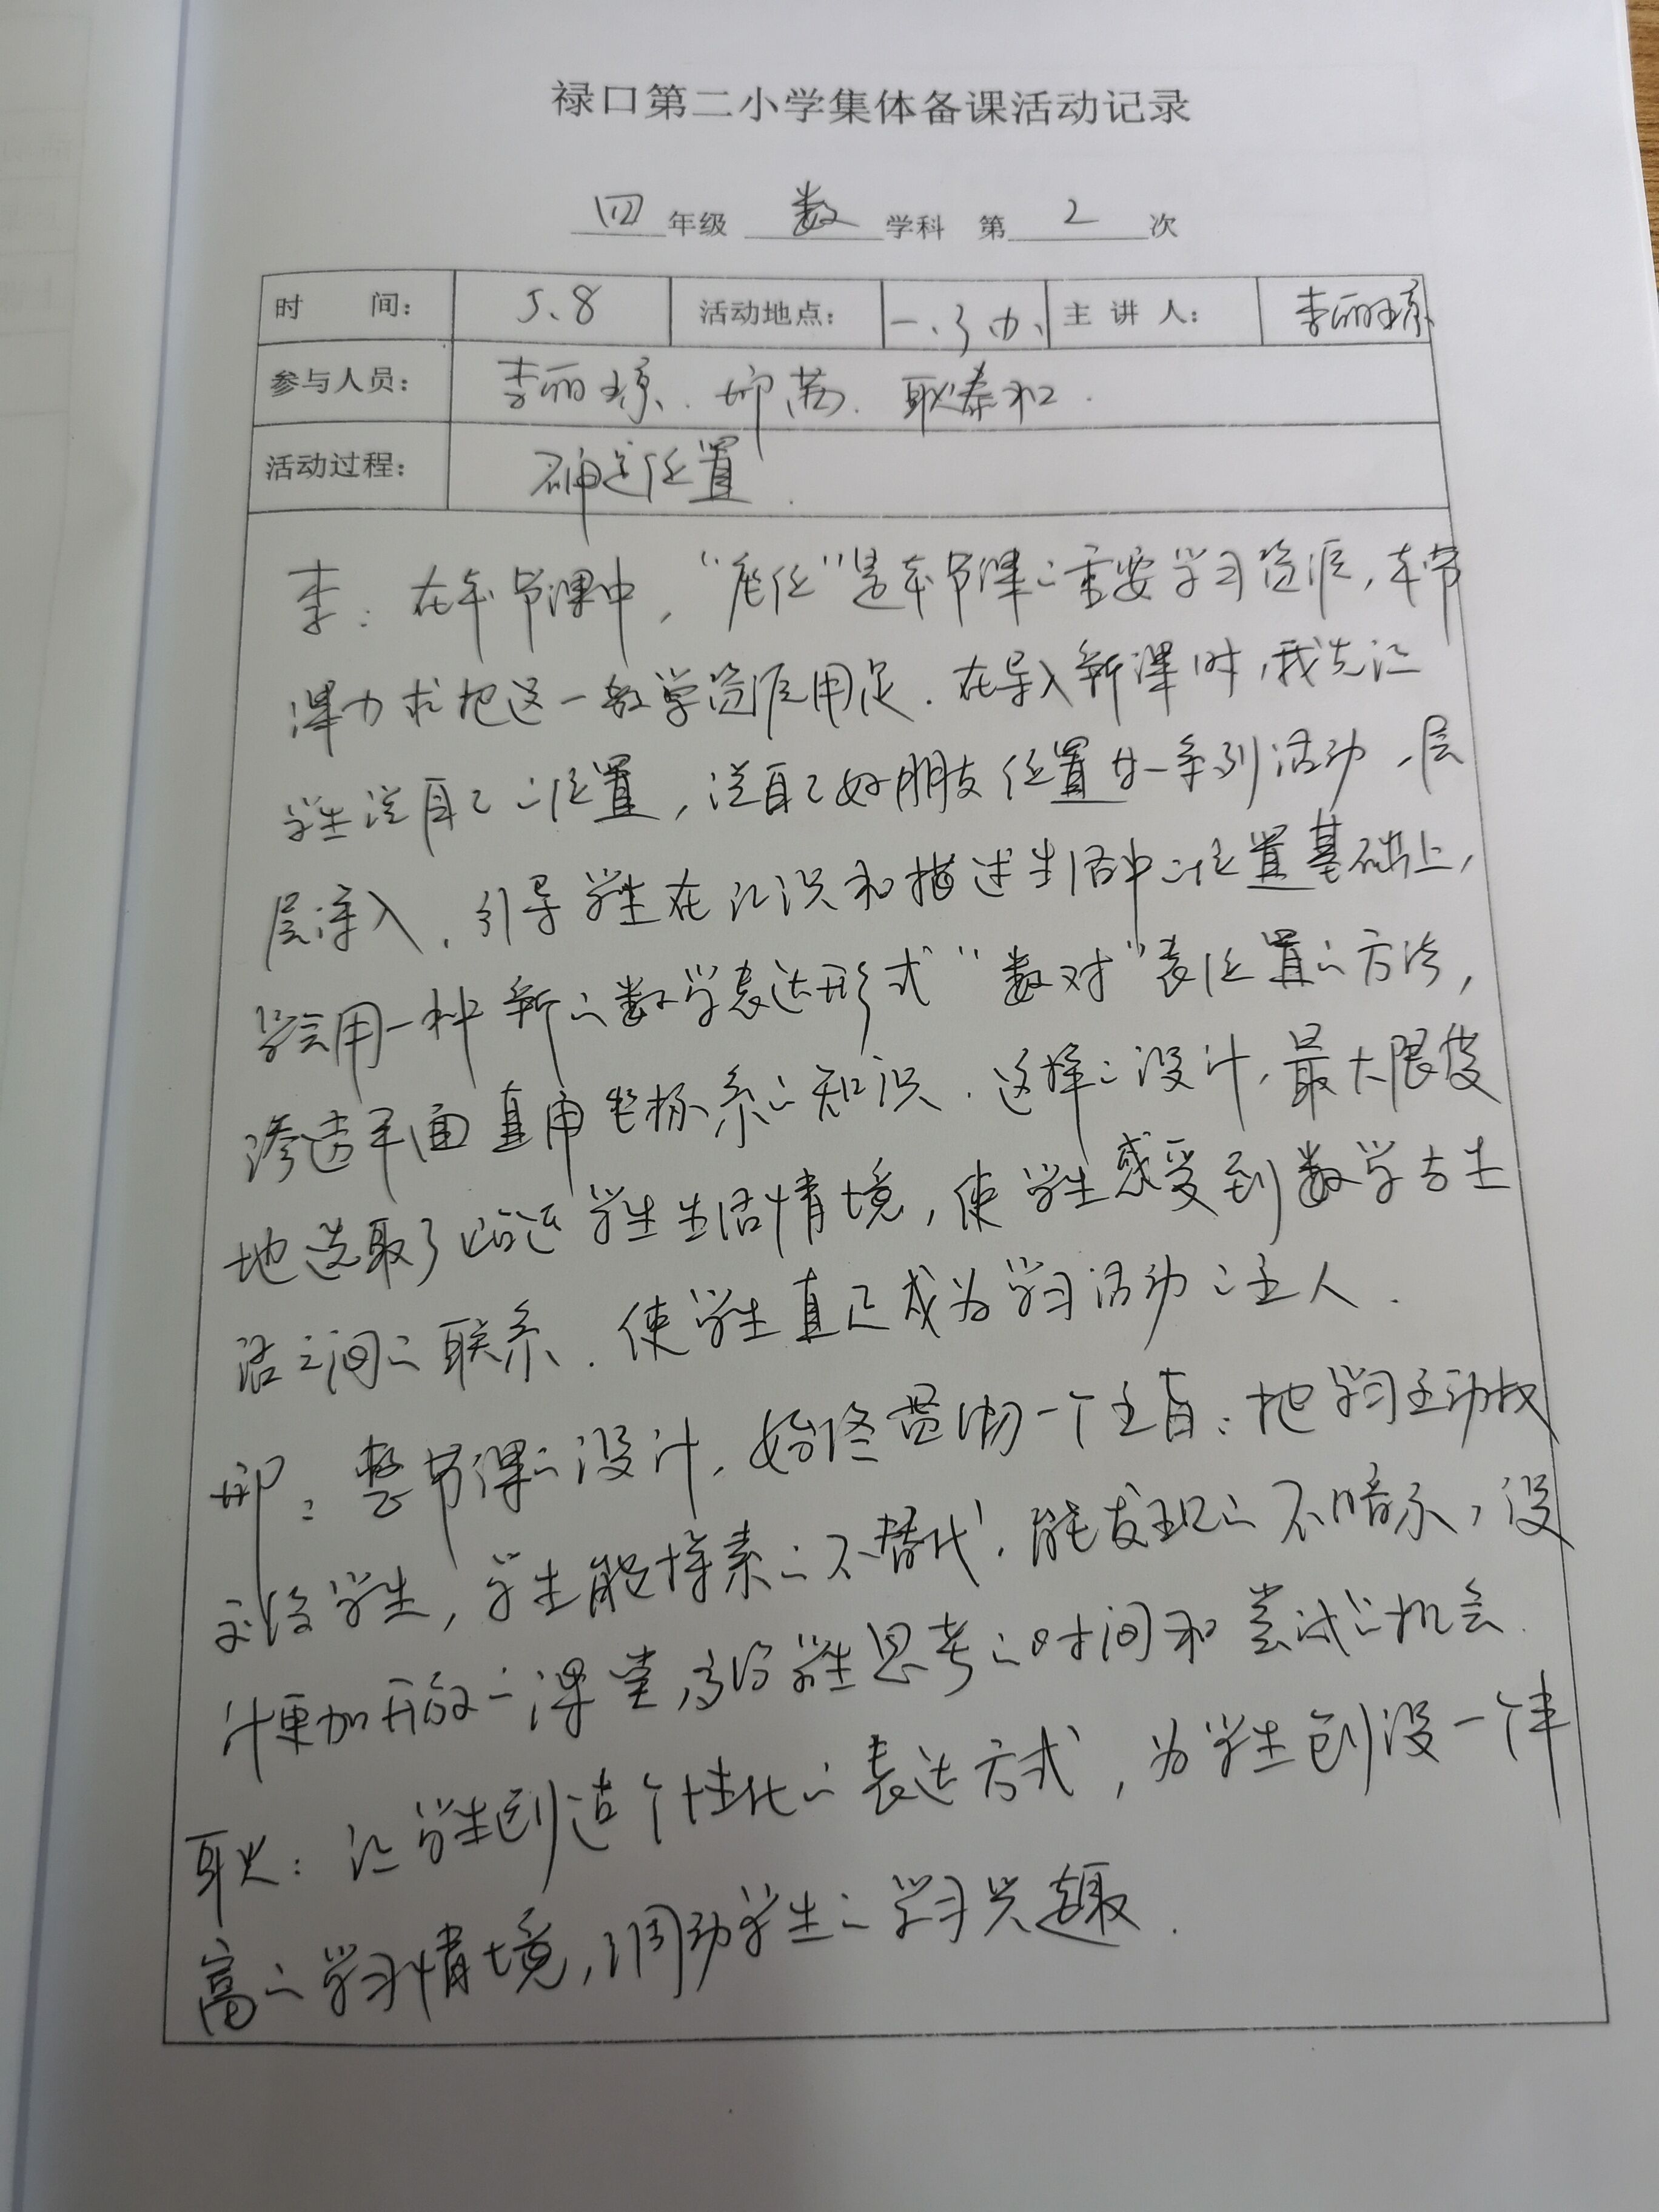 禄口第二小学集体备课活动记录
四年级 数 学科 第 2 次
时 间： 5.8 活动地点： 一、3办、 主 讲 人： 李丽琼
参与人员： 李丽琼、邰茜、耿春和.
活动过程： 确定位置.
李：在本节课中，“座位”是本节课的重要学习资源，本节
课力求把这一教学资源用足.在导入新课时，我先让
学生说自己的位置，说自己好朋友位置廿一系列活动，层
层深入，引导学生在认识和描述生活中的位置基础上，
学会用一种新的数学表达形式“数对”表位置的方法，
渗透平面直角坐标系的知识.这样的设计，最大限度
地选取了贴近学生生活情境，使学生感受到数学与生
活之间的联系.使学生真正成为学习活动的主人.
邰：整节课的设计，始终贯彻一个主旨：把学习主动权
交给学生，学生能探索的不替代，能发现的不暗示，设
计更加开放的课堂，多给学生思考的时间和尝试的机会.
耿：让学生创造个性化的表达方式，为学生创设一个丰
富的学习情境，调动学生的学习兴趣.